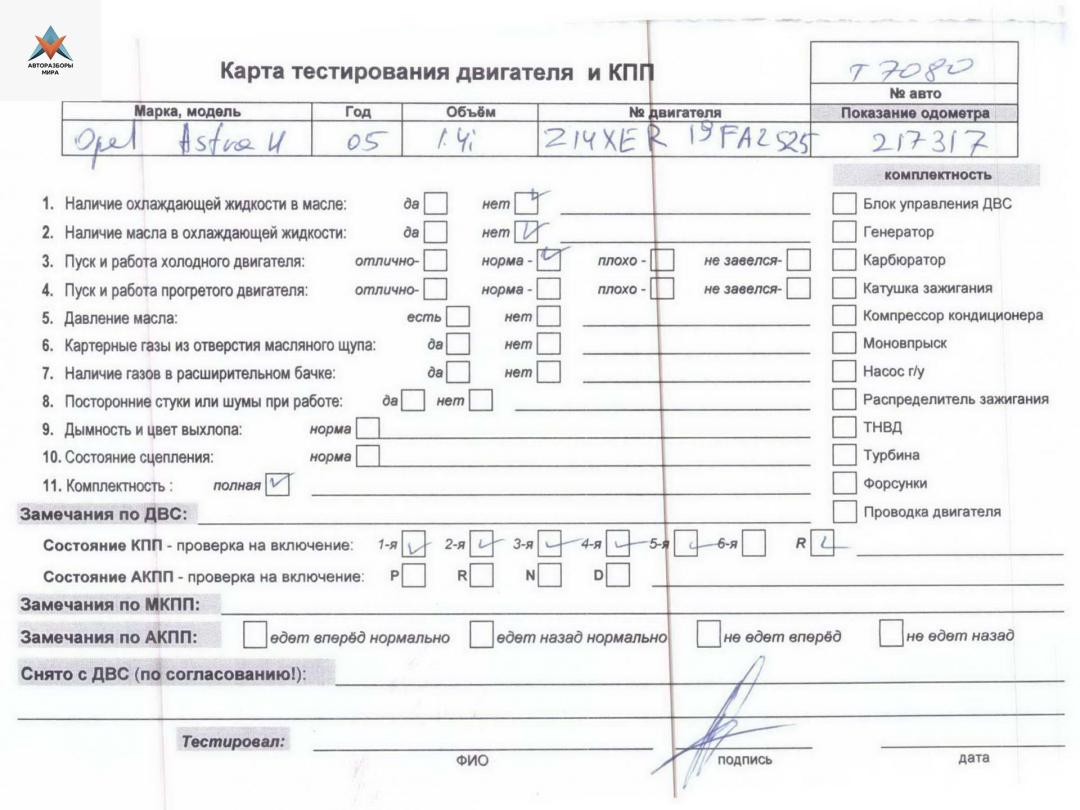 АВТОРАЗБОРЫ
МИРА
Карта тестирования двигателя и КПП
T 7080
№ авто
Марка, модель Год Объём № двигателя Показание одометра
Opel Astra H 05 1.4i Z14XER 19FA2525 217317
комплектность
1. Наличие охлаждающей жидкости в масле: да нет
Блок управления ДВС
2. Наличие масла в охлаждающей жидкости: да нет
Генератор
3. Пуск и работа холодного двигателя: отлично- норма - плохо - не завелся-
Карбюратор
4. Пуск и работа прогретого двигателя: отлично- норма - плохо - не завелся-
Катушка зажигания
5. Давление масла: есть нет
Компрессор кондиционера
6. Картерные газы из отверстия масляного щупа: да нет
Моновпрыск
7. Наличие газов в расширительном бачке: да нет
Насос г/у
8. Посторонние стуки или шумы при работе: да нет
Распределитель зажигания
9. Дымность и цвет выхлопа: норма
ТНВД
10. Состояние сцепления: норма
Турбина
11. Комплектность : полная
Форсунки
Замечания по ДВС:
Проводка двигателя
Состояние КПП - проверка на включение: 1-я 2-я 3-я 4-я 5-я 6-я R
Состояние АКПП - проверка на включение: P R N D
Замечания по МКПП:
Замечания по АКПП: едет вперёд нормально едет назад нормально не едет вперёд не едет назад
Снято с ДВС (по согласованию!):
Тестировал:
ФИО подпись дата